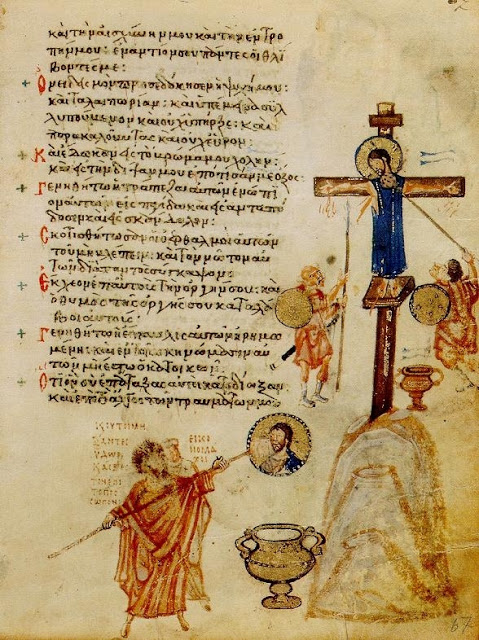 καὶ τὴν αἰσχύνην μου καὶ τὴν ἐντρο
πήν μου: ἐναντίον σου πάντες οἱ θλί
βοντές με:
Ὀνειδισμὸν προσεδόκησεν ἡ ψυχή μου:
καὶ ταλαιπωρίαν: καὶ ὑπέμεινα συλ
λυπούμενον καὶ οὐχ ὑπῆρξε: καὶ
παρακαλοῦντας καὶ οὐχ εὗρον:
Καὶ ἔδωκαν εἰς τὸ βρῶμά μου χολήν:
καὶ εἰς τὴν δίψαν μου ἐπότισάν με ὄξος:
Γενηθήτω ἡ τράπεζα αὐτῶν ἐνώπι
ον αὐτῶν εἰς παγίδα καὶ εἰς ἀνταπό
δοσιν καὶ εἰς σκάνδαλον:
Σκοτισθήτωσαν οἱ ὀφθαλμοὶ αὐτῶν
τοῦ μὴ βλέπειν: καὶ τὸν νῶτον αὐ
τῶν διὰ παντὸς σύγκαμψον:
Ἔκχεον ἐπ' αὐτοὺς τὴν ὀργήν σου: καὶ
ὁ θυμὸς τῆς ὀργῆς σου καταλά
βοι αὐτούς:
Γενηθήτω ἡ ἔπαυλις αὐτῶν ἠρημω
μένη: καὶ ἐν τοῖς σκηνώμασιν αὐ
τῶν μὴ ἔστω ὁ κατοικῶν:
Ὅτι ὃν σὺ ἐπάταξας αὐτοὶ κατεδίωξαν
καὶ ἐπὶ τὸ ἄλγος τῶν τραυμάτων μου
67